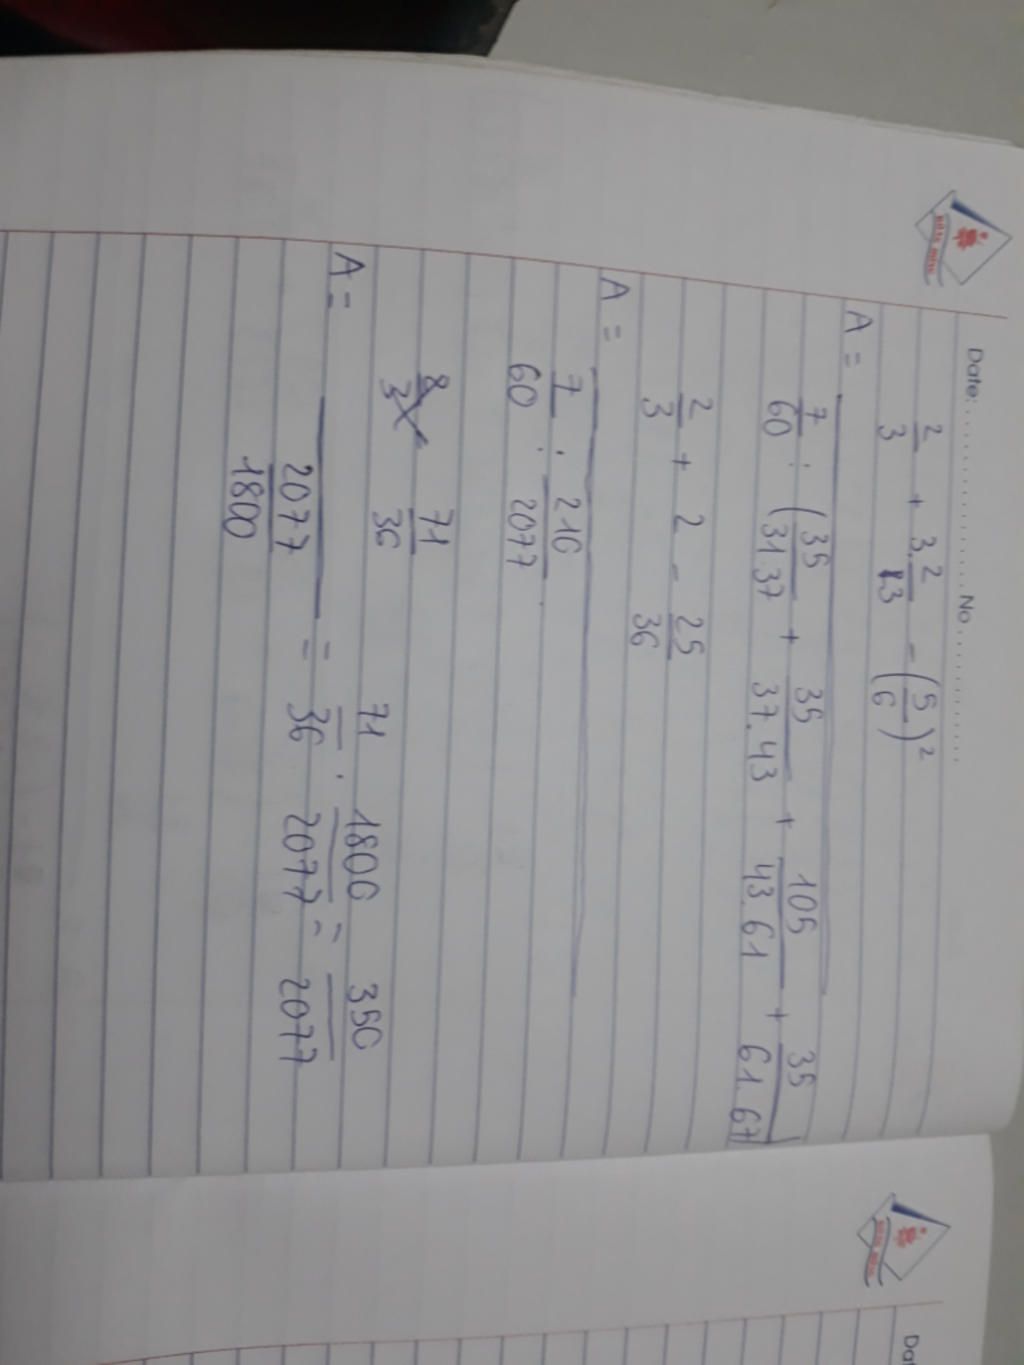 Date: ............ No ............
2/3 + 3.2/13 - (5/6)²
A =
7/60 : (35/31.37 + 35/37.43 + 105/43.61 + 35/61.67)
2/3 + 2 - 25/36
A =
7/60 : 216/2077
8/3 71/36
A = 71/36 . 1800/2077 = 350/2077
2077/1800